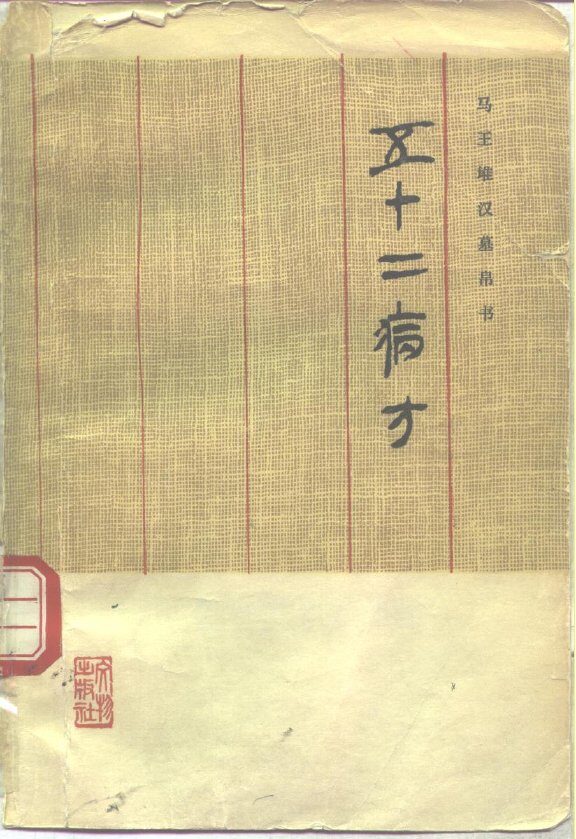 马王堆汉墓帛书
五十二病方
文物
出版社